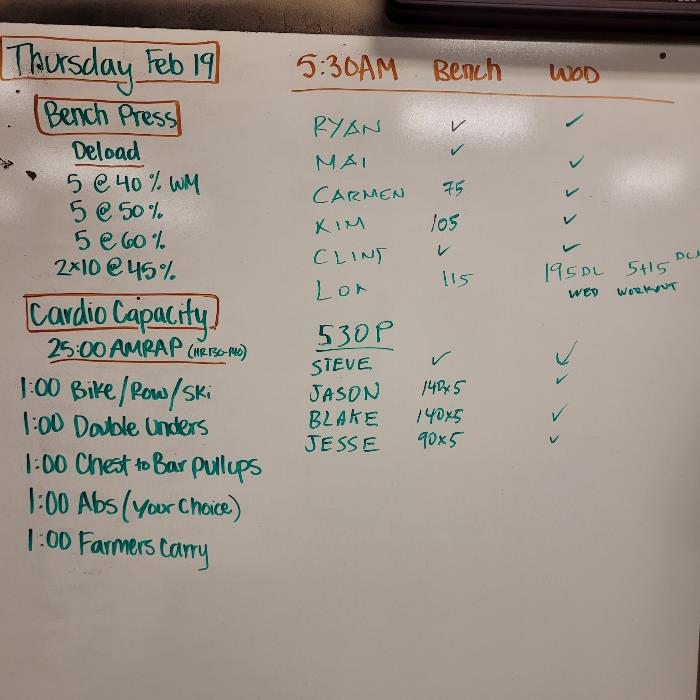 Thursday Feb 19
Bench Press
Deload
5 @ 40% WM
5 @ 50%
5 @ 60%
2x10 @ 45%
Cardio Capacity
25:00 AMRAP (HR 130-140)
1:00 Bike/Row/Ski
1:00 Double Unders
1:00 Chest to Bar Pullups
1:00 Abs (Your Choice)
1:00 Farmers Carry
5:30AM Bench WOD
RYAN ✓ ✓
MAI ✓ ✓
CARMEN 75 ✓
KIM 105 ✓
CLINT ✓ ✓
115 195 DL 5+15
WED WORKOUT
530P
STEVE ✓ ✓
JASON 140x5 ✓
BLAKE 140x5 ✓
JESSE 90x5 ✓